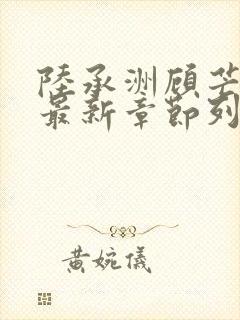 陸承洲顧芒
最新章節列
黃婉儀